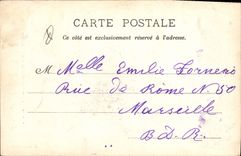 CARTE POSTALE
Ce côté est exclusivement réservé à l'adresse.
M Melle Emilie Fornero
Rue de Rome N 50
Marseille
B.D.R.